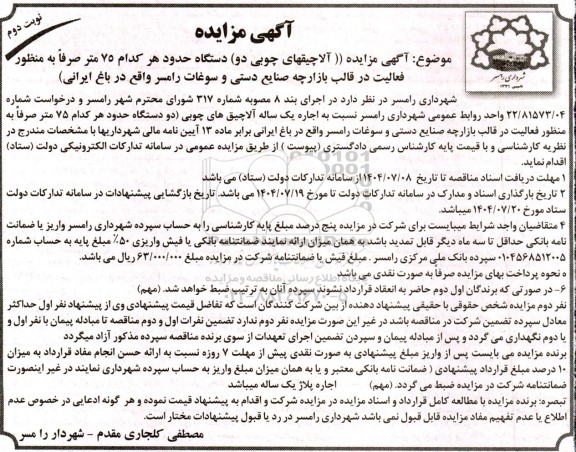 آگهی مزایده
نوبت دوم
شهرداری رامسر
موضوع: آگهی مزایده (( آلاچیقهای چوبی دو) دستگاه حدود هر کدام ۷۵ متر صرفاً به منظور
فعالیت در قالب بازارچه صنایع دستی و سوغات رامسر واقع در باغ ایرانی)
شهرداری رامسر در نظر دارد در اجرای بند ۸ مصوبه شماره ۳۱۷ شورای محترم شهر رامسر و درخواست شماره
۲۲/۸۱۵۷۳/۰۴ واحد روابط عمومی شهرداری رامسر نسبت به اجاره یک ساله آلاچیق های چوبی (دو دستگاه حدود هر کدام ۷۵ متر صرفاً به
منظور فعالیت در قالب بازارچه صنایع دستی و سوغات رامسر واقع در باغ ایرانی برابر ماده ۱۳ آیین نامه مالی شهرداریها با مشخصات مندرج در
نظریه کارشناسی و با قیمت پایه کارشناس رسمی دادگستری (پیوست ) از طریق مزایده عمومی در سامانه تدارکات الکترونیکی دولت (ستاد)
اقدام نماید.
۱ مهلت دریافت اسناد مناقصه تا تاریخ ۱۴۰۴/۰۷/۰۸از سامانه تدارکات دولت (ستاد) می باشد
۲ تاریخ بارگذاری اسناد و مدارک در سامانه تدارکات دولت تا مورخ ۱۴۰۴/۰۷/۱۹ می باشد. تاریخ بازگشایی پیشنهادات در سامانه تدارکات دولت
ستاد مورخ ۱۴۰۴/۰۷/۲۰ میباشد.
۴ متقاضیان واجد شرایط میبایست برای شرکت در مزایده پنج درصد مبلغ پایه کارشناسی را به حساب سپرده شهرداری رامسر واریز یا ضمانت
نامه بانکی حداقل تا سه ماه دیگر قابل تمدید باشد به همان میزان ارائه نمایند ضمانتنامه بانکی یا فیش واریزی ۵۰٪ مبلغ پایه به حساب شماره
۰۱۰۴۵۶۸۵۱۲۰۰۵ سپرده بانک ملی مرکزی رامسر . مبلغ فیش یا ضمانتنامه شرکت در مزایده مبلغ ۶۳/۰۰۰/۰۰۰ ریال می باشد.
۵ نحوه پرداخت بهای مزایده صرفاً به صورت نقدی می باشد
۶- در صورتی که برندگان اول دوم حاضر به انعقاد قرارداد نشوند سپرده آنان به ترتیب ضبط خواهد شد. (مهم)
نفر دوم مزایده شخص حقوقی یا حقیقی پیشنهاد دهنده از بین شرکت کنندگان است که تفاضل قیمت پیشنهادی وی از پیشنهاد نفر اول حداکثر
معادل سپرده تضمین شرکت در مناقصه باشد در غیر این صورت مزایده نفر دوم ندارد تضمین نفرات اول و دوم مناقصه تا مبادله پیمان با نفر اول و
یا دوم نگهداری می گردد و پس از مبادله پیمان و سپردن تضمین اجرای تعهدات از سوی برنده مناقصه سپرده مذکور آزاد میگردد
برنده مزایده می بایست پس از واریز مبلغ پیشنهادی به صورت نقدی پیش از مهلت ۷ روزه نسبت به ارائه حسن انجام مفاد قرارداد به میزان
۱۰ درصد مبلغ قرارداد پیشنهادی ( ضمانت نامه بانکی معتبر و یا به همان میزان مبلغ واریز به حساب سپرده شهرداری نمایند در غیر اینصورت
ضمانتنامه شرکت در مزایده ضبط می گردد. (مهم) اجاره پلاژ یک ساله میباشد
تبصره: برنده مزایده با مطالعه کامل قرارداد و اسناد مزایده در مزایده شرکت و اقدام به پیشنهاد قیمت نموده و هر گونه ادعایی در خصوص عدم
اطلاع یا عدم تفهیم مفاد مزایده قابل قبول نمی باشد شهرداری رامسر در رد یا قبول پیشنهادات مختار است.
مصطفی کلجاری مقدم - شهردار را مسر